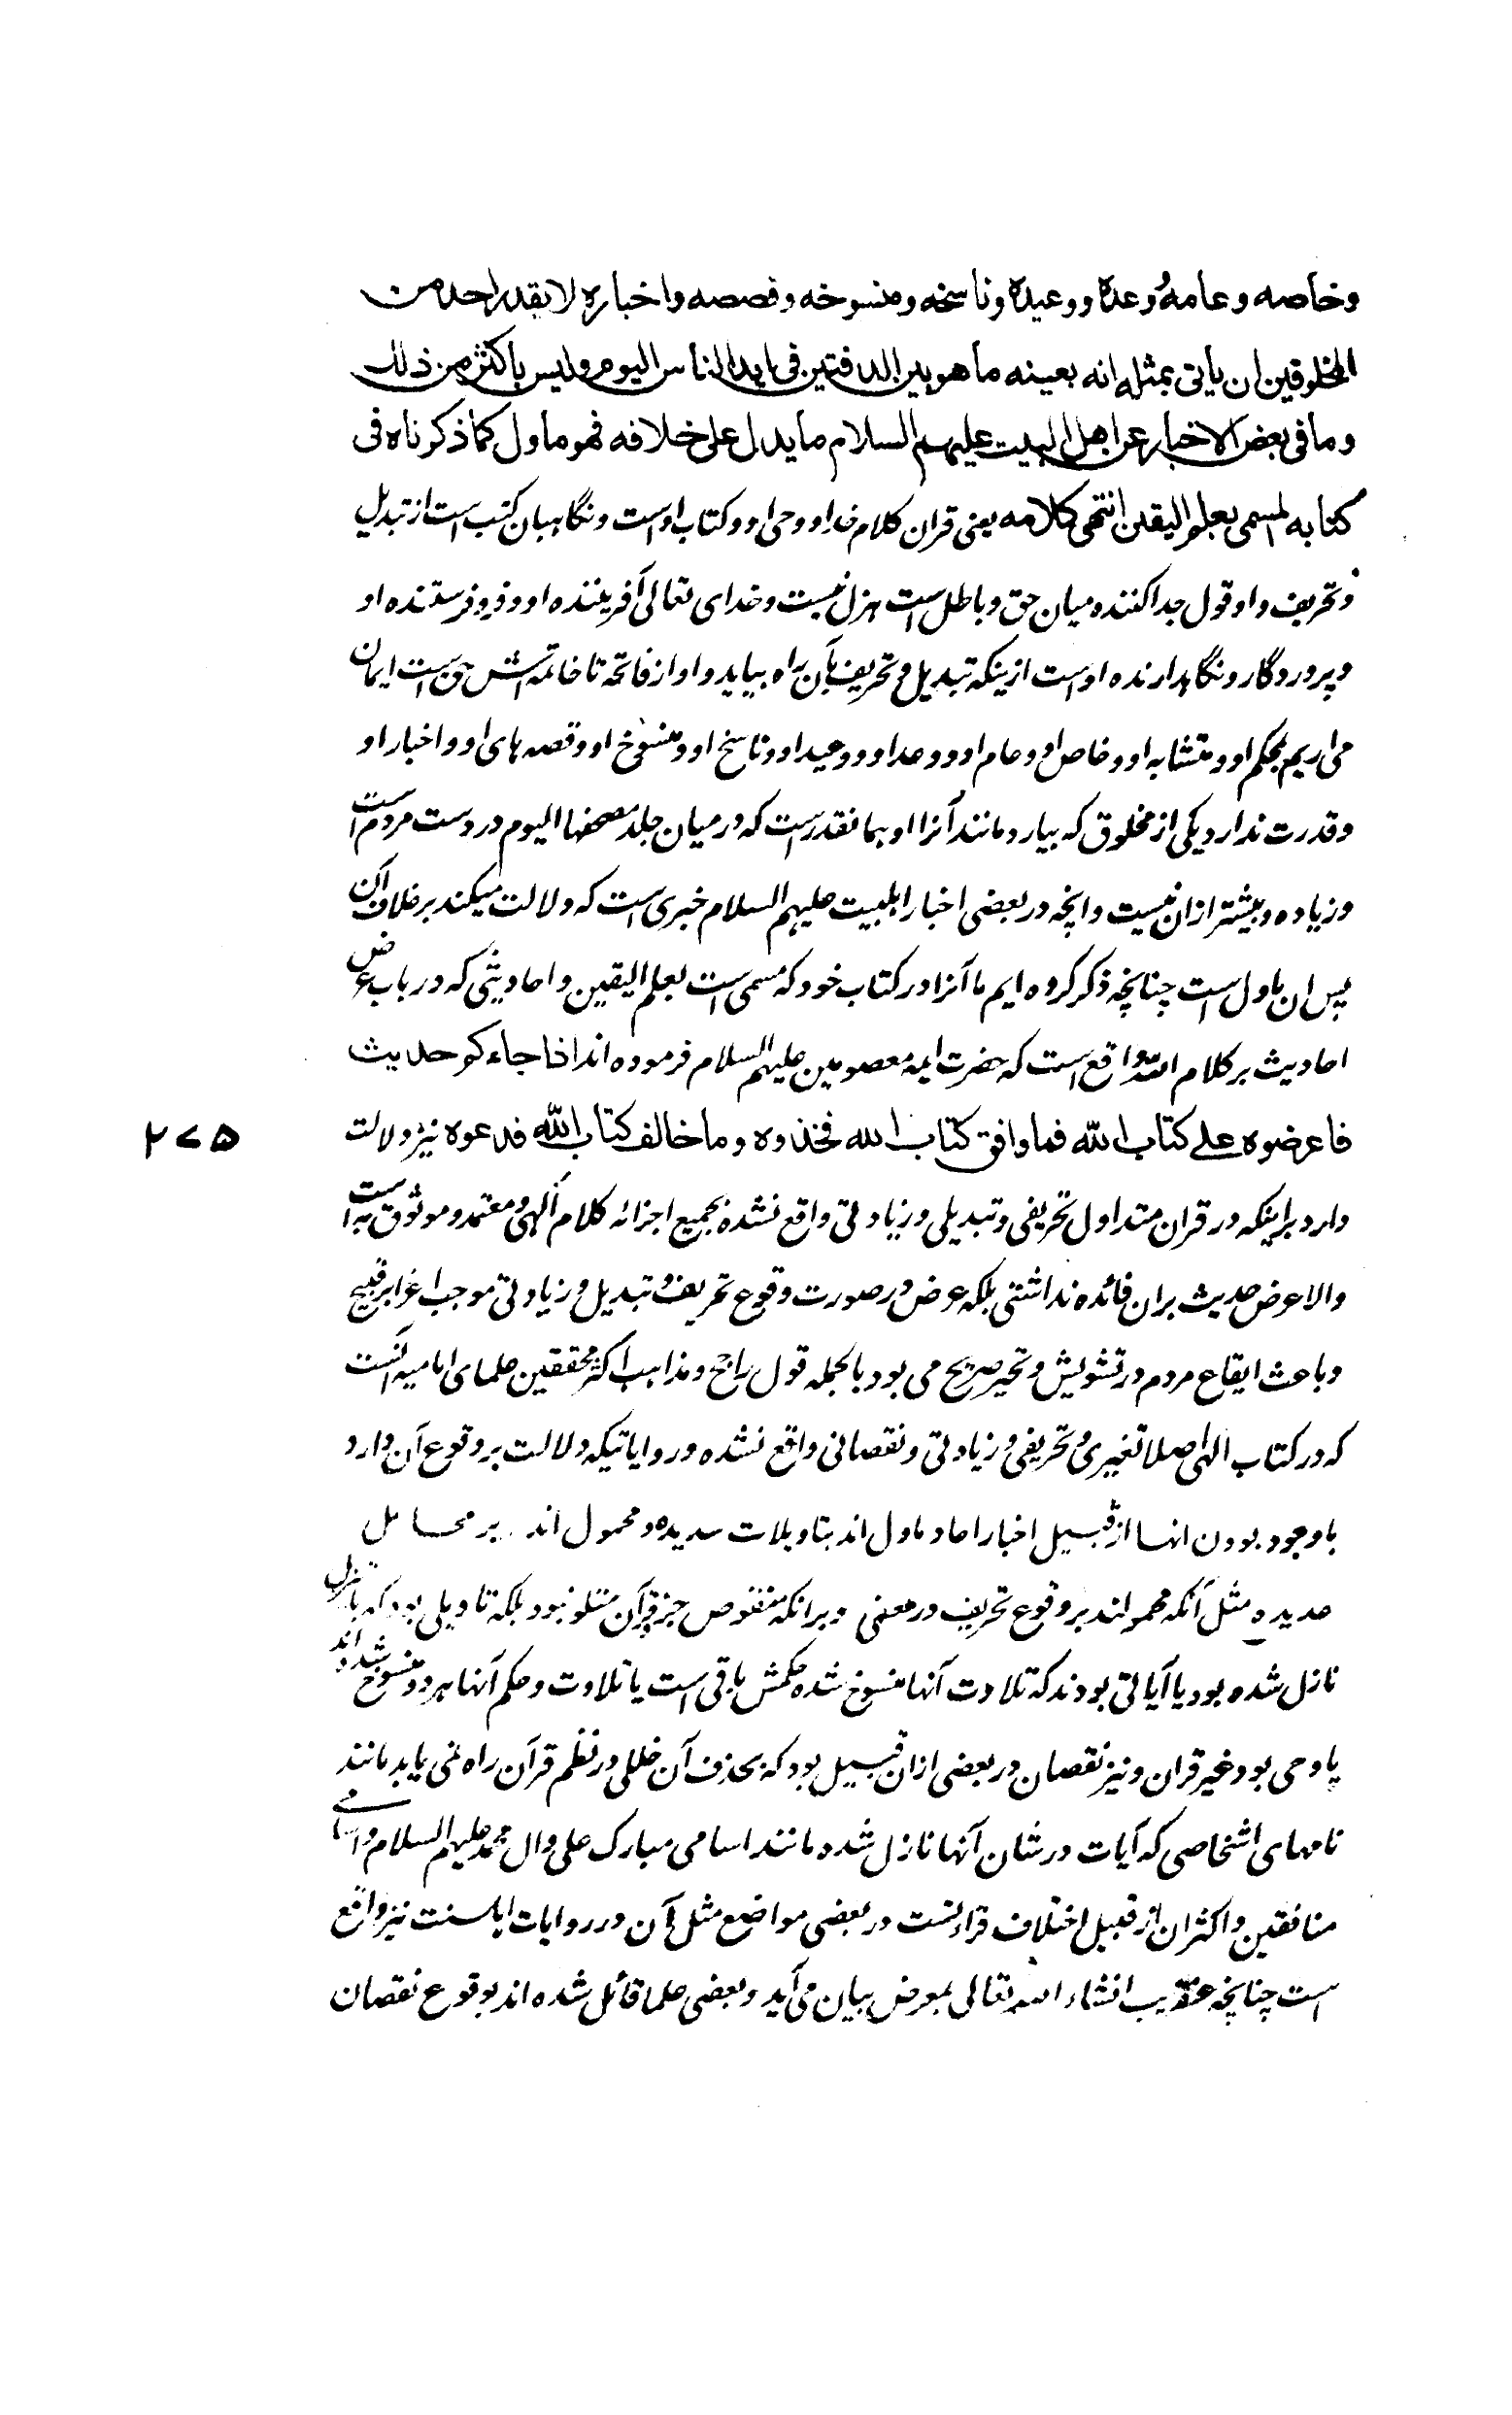 وخاصه وعامه ووعده ووعیده وناسخه ومنسوخه وقصصه واخباره لا یقدر احد من
المخلوقین ان یأتی بمثله انه بعینه ما هو بین الدفتین فی ایدی الناس الیوم ولیس باکثر من ذلک
وما فی بعض الاخبار عن اهل البیت علیهم السلام ما یدل علی خلافه فهو ماول کما ذکرناه فی
کتابه المسمی بعلم الیقین انتهی کلامه یعنی قران کلام خدا و وحی او و کتاب اوست و نگاهبان کتب است از تبدیل
و تحریف و او قول جدا کننده میان حق و باطل است هزل نیست و خدای تعالی آفریننده او و فرو فرستنده او
و پروردگار و نگاهدارنده اوست از ینکه تبدیل و تحریف بآن راه بیابد و او از فاتحه تا خاتمه اش حق است ایمان
می اریم بمحکم او و متشابه او و خاص او و عام او و وعد او و وعید او و ناسخ او و منسوخ او و قصه های او و اخبار او
و قدرت ندارد یکی از مخلوق که بیارد مانند آنرا او بهمانقدر است که در میان جلد مصحفها الیوم در دست مردم است
و زیاده و بیشتر ازان نیست و انچه در بعضی اخبار اهلبیت علیهم السلام خبری است که دلالت میکند بر خلاف آن
پس ان ماول است چنانچه ذکر کرده ایم ما آنرا در کتاب خود که مسمی است بعلم الیقین و احادیثی که در باب عرض
احادیث بر کلام الله واقع است که حضرت ایمه معصومین علیهم السلام فرموده اند اذا جاءکم حدیث
فاعرضوه علی کتاب الله فما وافق کتاب الله فخذوه وما خالف کتاب الله فدعوه نیز دلالت
۲۷۵
دارد براینکه در قران متداول تحریفی و تبدیلی و زیادتی واقع نشده بجمیع اجزائه کلام الهی و معتمد و موثوق به است
والا عرض حدیث بران فائده نداشتی بلکه عرض در صورت وقوع تحریف و تبدیل و زیادتی موجب اغرا بر قبیح
و باعث ایقاع مردم در تشویش و تحیر صریح می بود بالجمله قول راجح و مذاهب اکثر محققین علمای امامیه آنست
که در کتاب الهی اصلا تغییری و تحریفی و زیادتی و نقصانی واقع نشده و روایاتیکه دلالت بر وقوع آن دارد
با وجود بودن انها از قبیل اخبار احاد ماول اند بتاویلات سدیده و محمول اند بر محامل
عدیده مثل آنکه محمولند بر وقوع تحریف در معنی و برانکه منقوص جز قرآن متلو نبود بلکه تاویلی بود که با تنزیل
نازل شده بود یا آیاتی بودند که تلاوت آنها منسوخ شده حکمش باقی است یا تلاوت و حکم آنها هر دو منسوخ شده اند
یا وحی بود غیر قران و نیز نقصان در بعضی ازان قبیل بود که بحذف آن خللی در نظم قرآن راه نمی یابد مانند
نامهای اشخاصی که آیات در شان آنها نازل شده مانند اسامی مبارک علی و ال محمد علیهم السلام و اسامی
منافقین و اکثر ان از قبیل اختلاف قراءتست در بعضی مواضع مثل آن در روایات اهلسنت نیز واقع
است چنانچه عنقریب انشاء الله تعالی بمعرض بیان می آید و بعضی علما قائل شده اند بوقوع نقصان